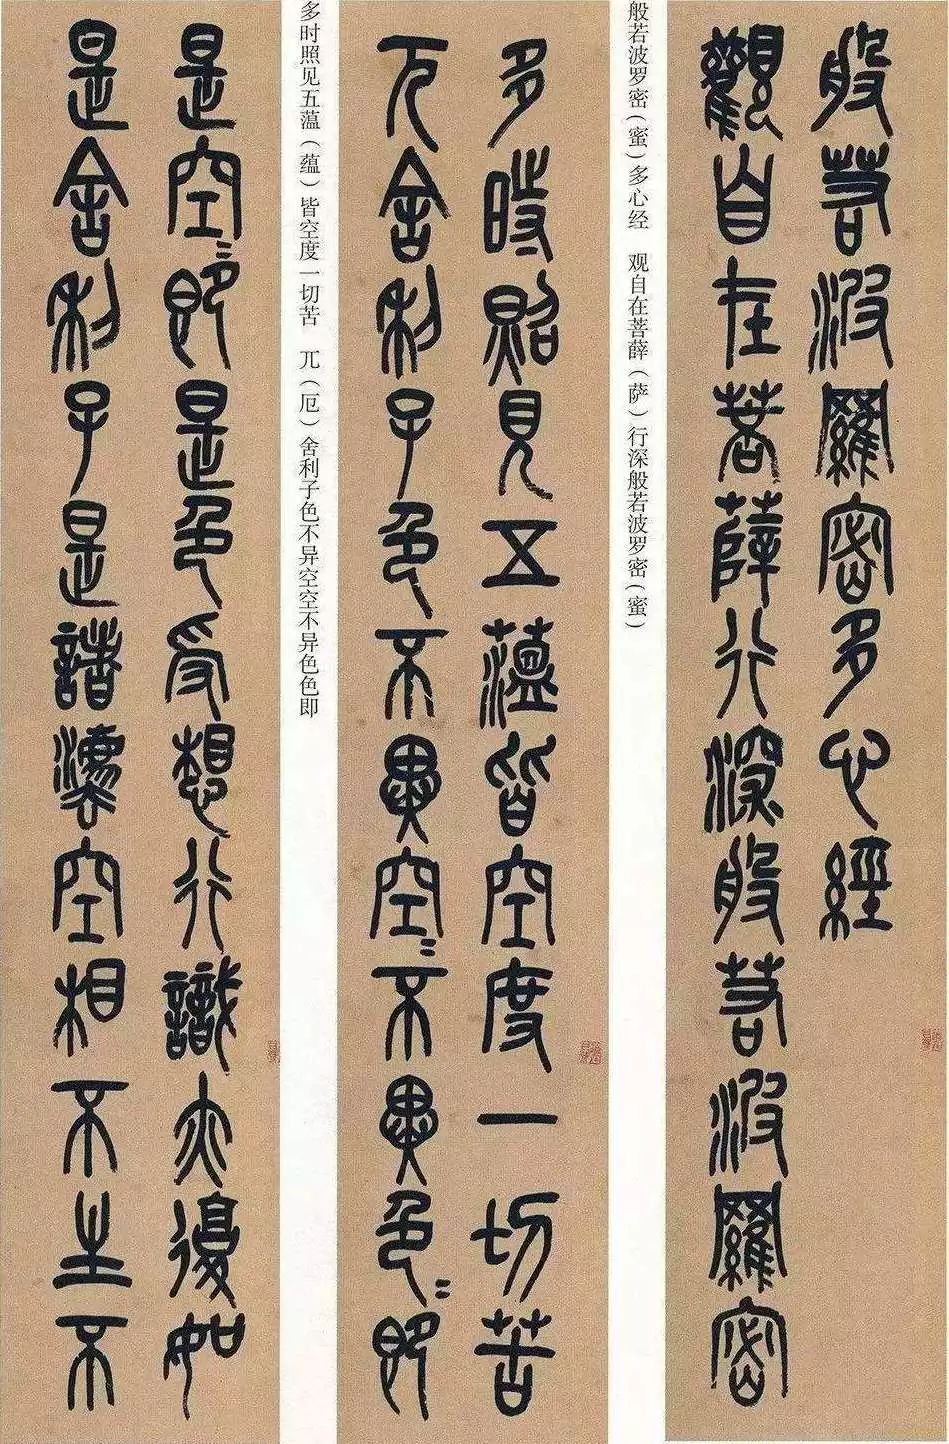 般若波羅密多心經
觀自在菩薛行深般若波羅密
般若波罗密(蜜)多心经 观自在菩薛(萨)行深般若波罗密(蜜)
多時照見五薀皆空度一切苦
兀舍利子色不異空〻不異色〻即
多时照见五薀(蕴)皆空度一切苦 兀(厄)舍利子色不异空空不异色色即
是空〻即是色受想行識亦復如
是舍利子是諸灋空相不生不